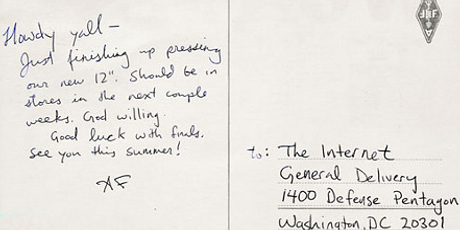 Howdy yall—
Just finishing up pressing
our new 12". Should be in
stores in the next couple
weeks. God willing.
Good luck with finals.
See you this summer!
XF
To: The Internet
General Delivery
1400 Defense Pentagon
Washington, DC 20301